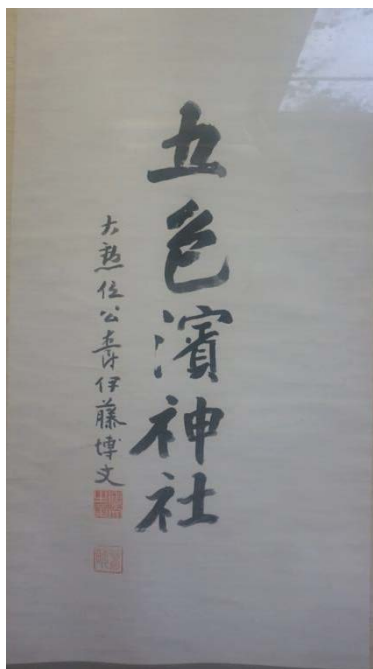 五色濱神社
大勲位公爵伊藤博文